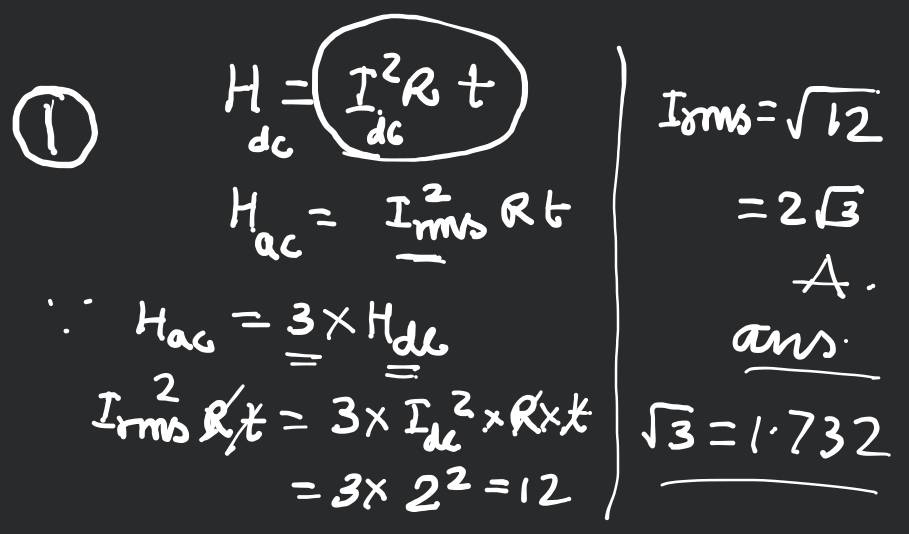 ①
H_dc = I_dc² R t
H_ac = I_rms² R t
∵ H_ac = 3 × H_dc
I_rms² R t = 3 × I_dc² × R × t
= 3 × 2² = 12
I_rms = √12
= 2√3
A.
ans.
√3 = 1.732